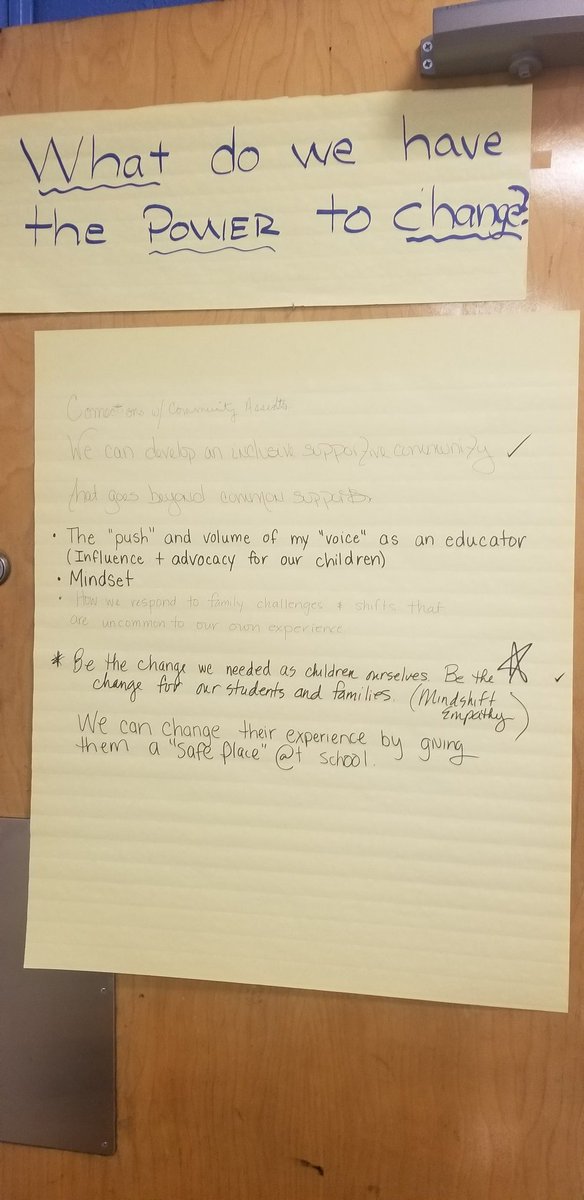 What do we have
the POWER to change?
Connections w/ Community Assets
We can develop an inclusive supportive community ✓
that goes beyond common supports
• The "push" and volume of my "voice" as an educator
(Influence + advocacy for our children)
• Mindset
• How we respond to family challenges + shifts that
are uncommon to our own experience
* Be the change we needed as children ourselves. Be the ☆ ✓
change for our students and families. (Mindshift
Empathy)
We can change their experience by giving
them a "safe place" @t school.